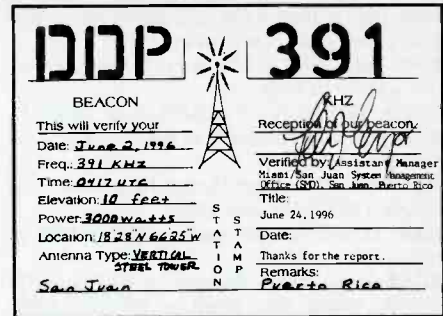 DDP 391
BEACON
KHZ
This will verify your
Reception of our beacon.
Date: June 2, 1996
Freq.: 391 KHz
Time: 0417 UTC
Elevation: 10 feet
Power: 3000 watts
Location: 18 28 N 66 25 W
Antenna Type: VERTICAL
STEEL TOWER
San Juan
STATION
STAMP
Verified by: Assistant Manager
Miami/San Juan System Management
Office (SMO), San Juan, Puerto Rico
Title:
June 24, 1996
Date:
Thanks for the report.
Remarks:
Puerto Rico